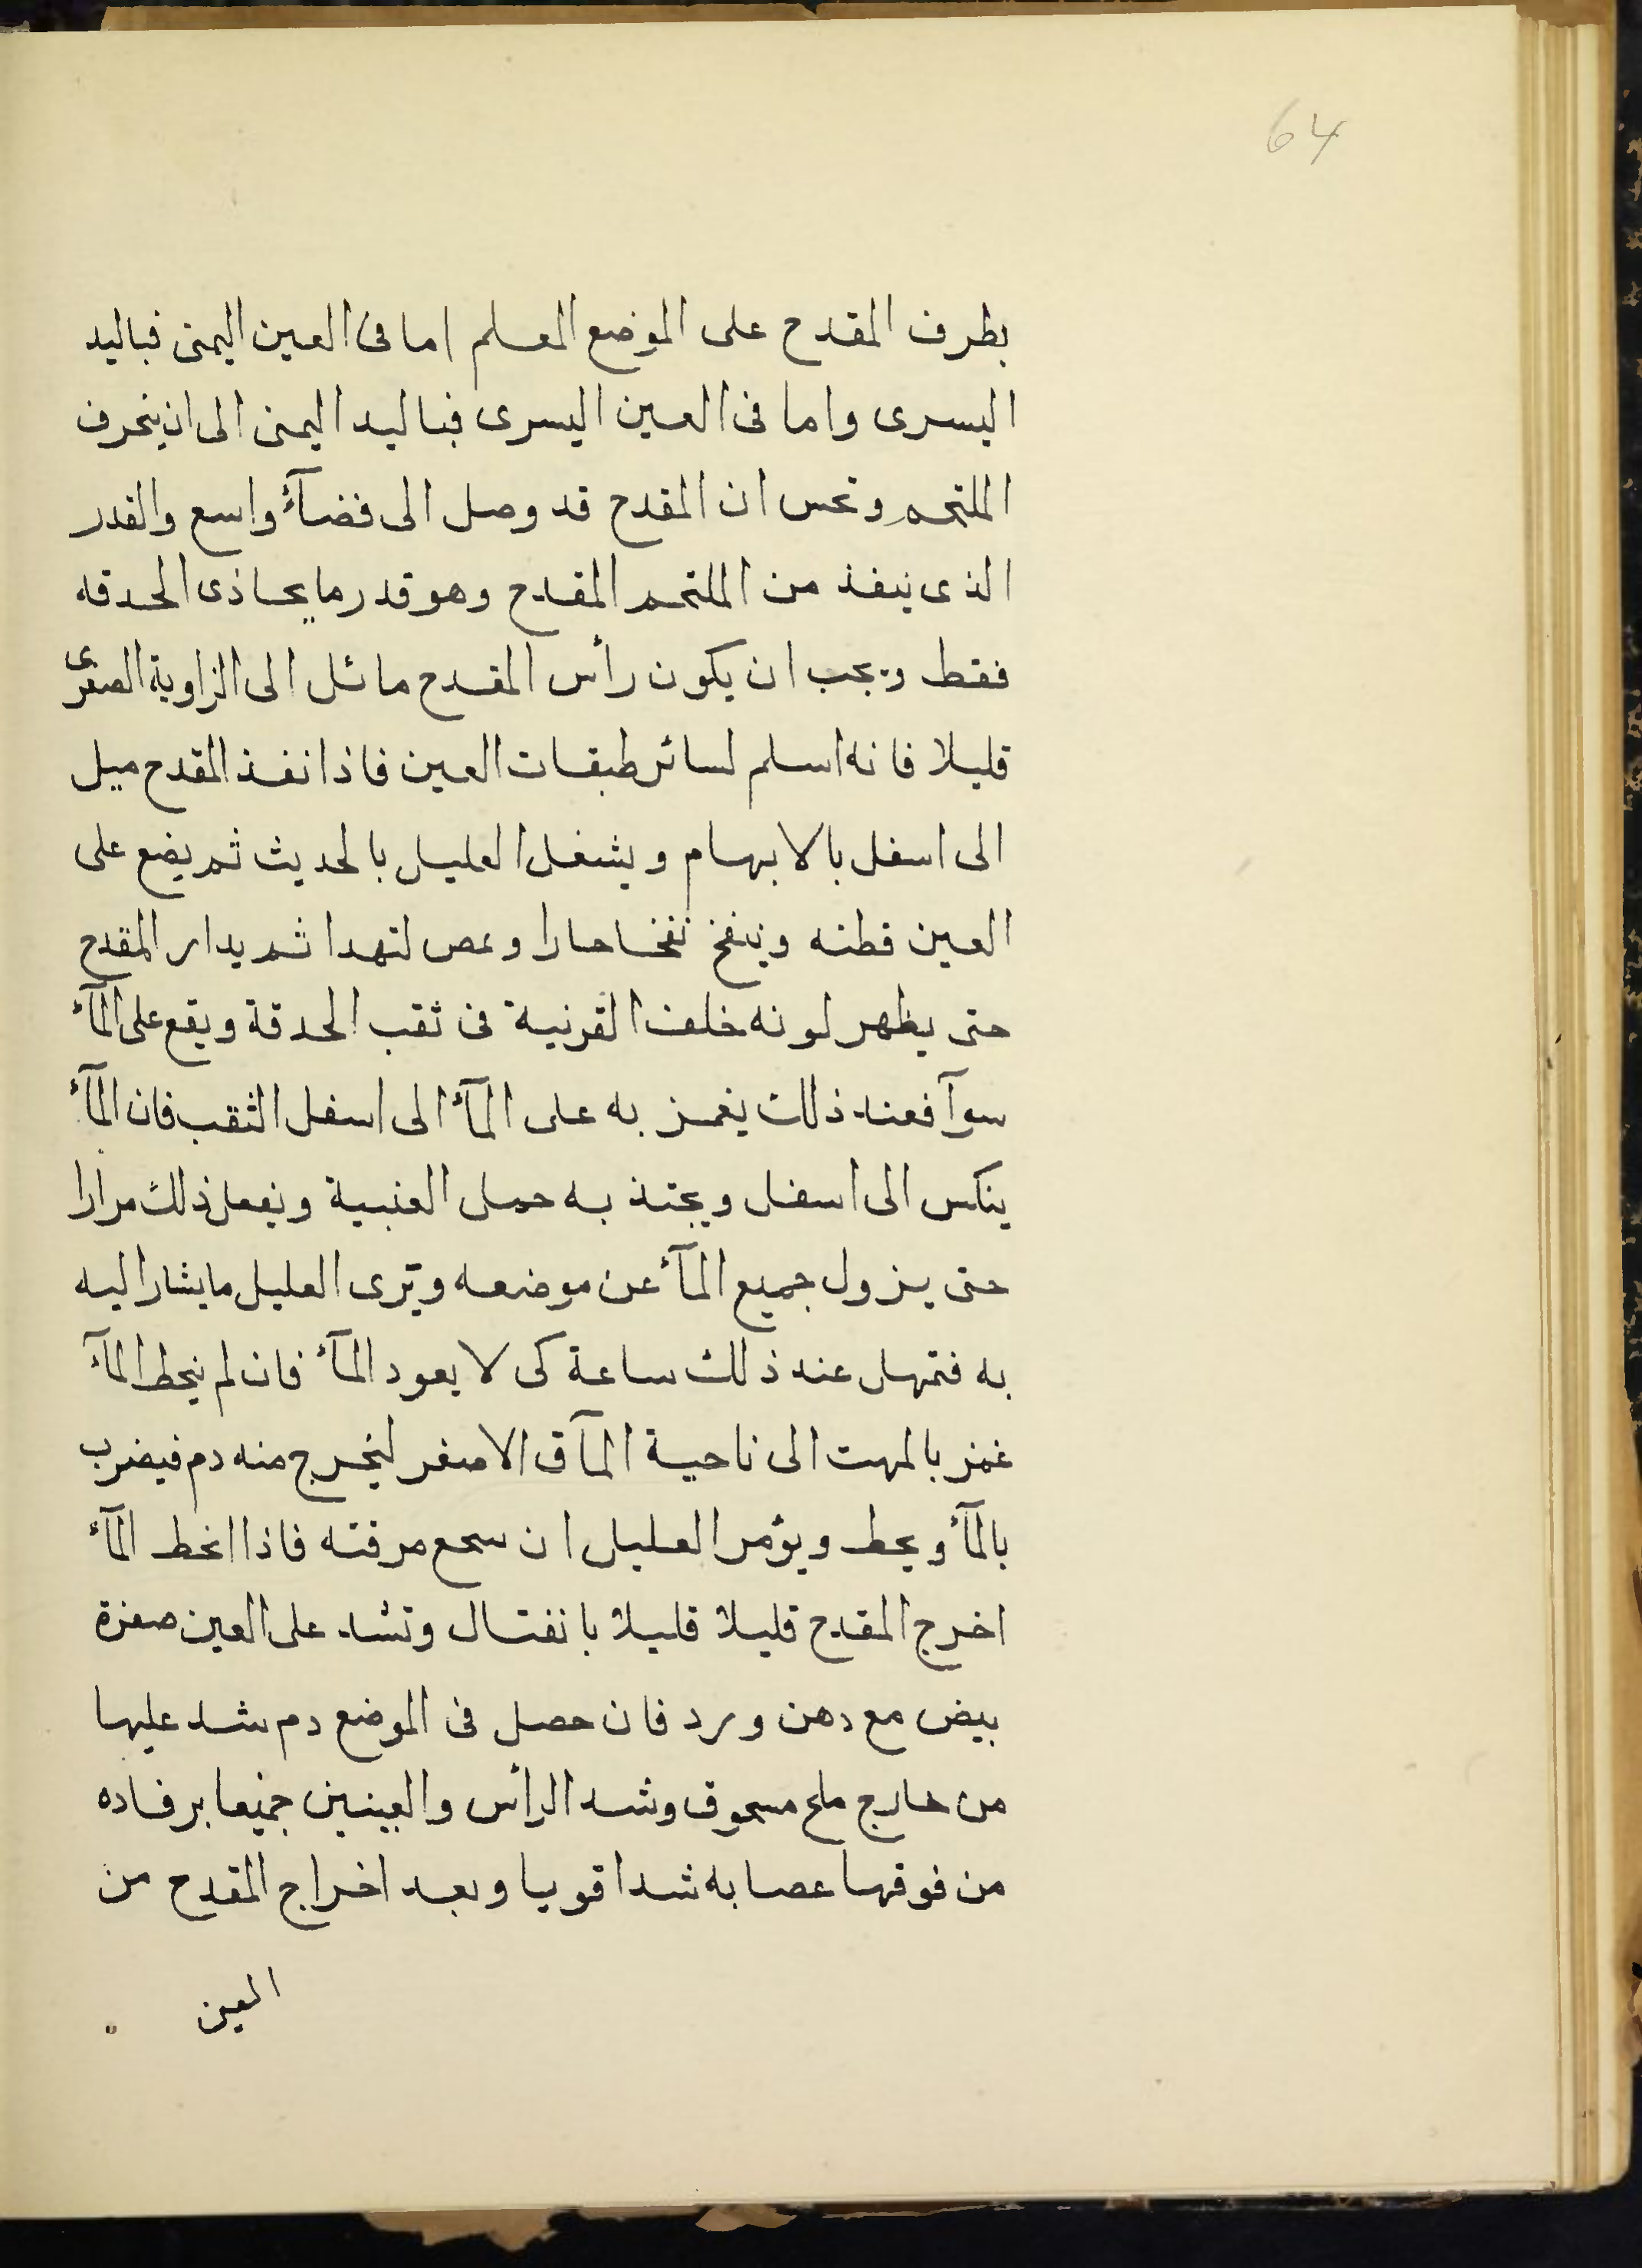 64
بطرف المقدح على الموضع المعلم اما فى العين اليمنى فباليد
اليسرى واما فى العين اليسرى فباليد اليمنى الى ان ينحرف
الملتحم وتحس ان المقدح قد وصل الى فضآء واسع والقدر
الذى ينفذ من الملتحم المقدح وهو قدر ما يحاذى الحدقه
فقط ويجب ان يكون رأس المقدح مائل الى الزاوية الصغرى
قليلا فانه اسلم لسائر طبقات العين فاذا نفذ المقدح ميل
الى اسفل بالابهام ويشغل العليل بالحديث ثم يضع على
العين قطنه وينفخ نفخا حارا وعص لتهدا ثم يدار المقدح
حتى يظهر لونه خلف القرنية فى ثقب الحدقة ويقع على المآء
سوآ فعند ذلك يغمز به على المآء الى اسفل الثقب فان المآء
ينكس الى اسفل ويجتذ به حمل العنبية ويفعل ذلك مرارا
حتى يزول جميع المآء عن موضعه ويرى العليل ما يشار اليه
به فتمهل عند ذلك ساعة كى لا يعود المآء فان لم ينحط المآء
غمز بالمهت الى ناحية المآق الاصغر ليخرج منه دم فيضرب
بالمآء ويحط ويؤمر العليل ان مرفته فاذا انحط المآء
اخرج المقدح قليلا قليلا بانفتال وتشد على العين صفرة
بيض مع دهن ورد فان حصل فى الموضع دم شد عليها
من خارج ملح مسحوق وشد الرأس والعينين جميعا برفاده
من فوقها عصابه شدا قويا وبعد اخراج المقدح من
العين